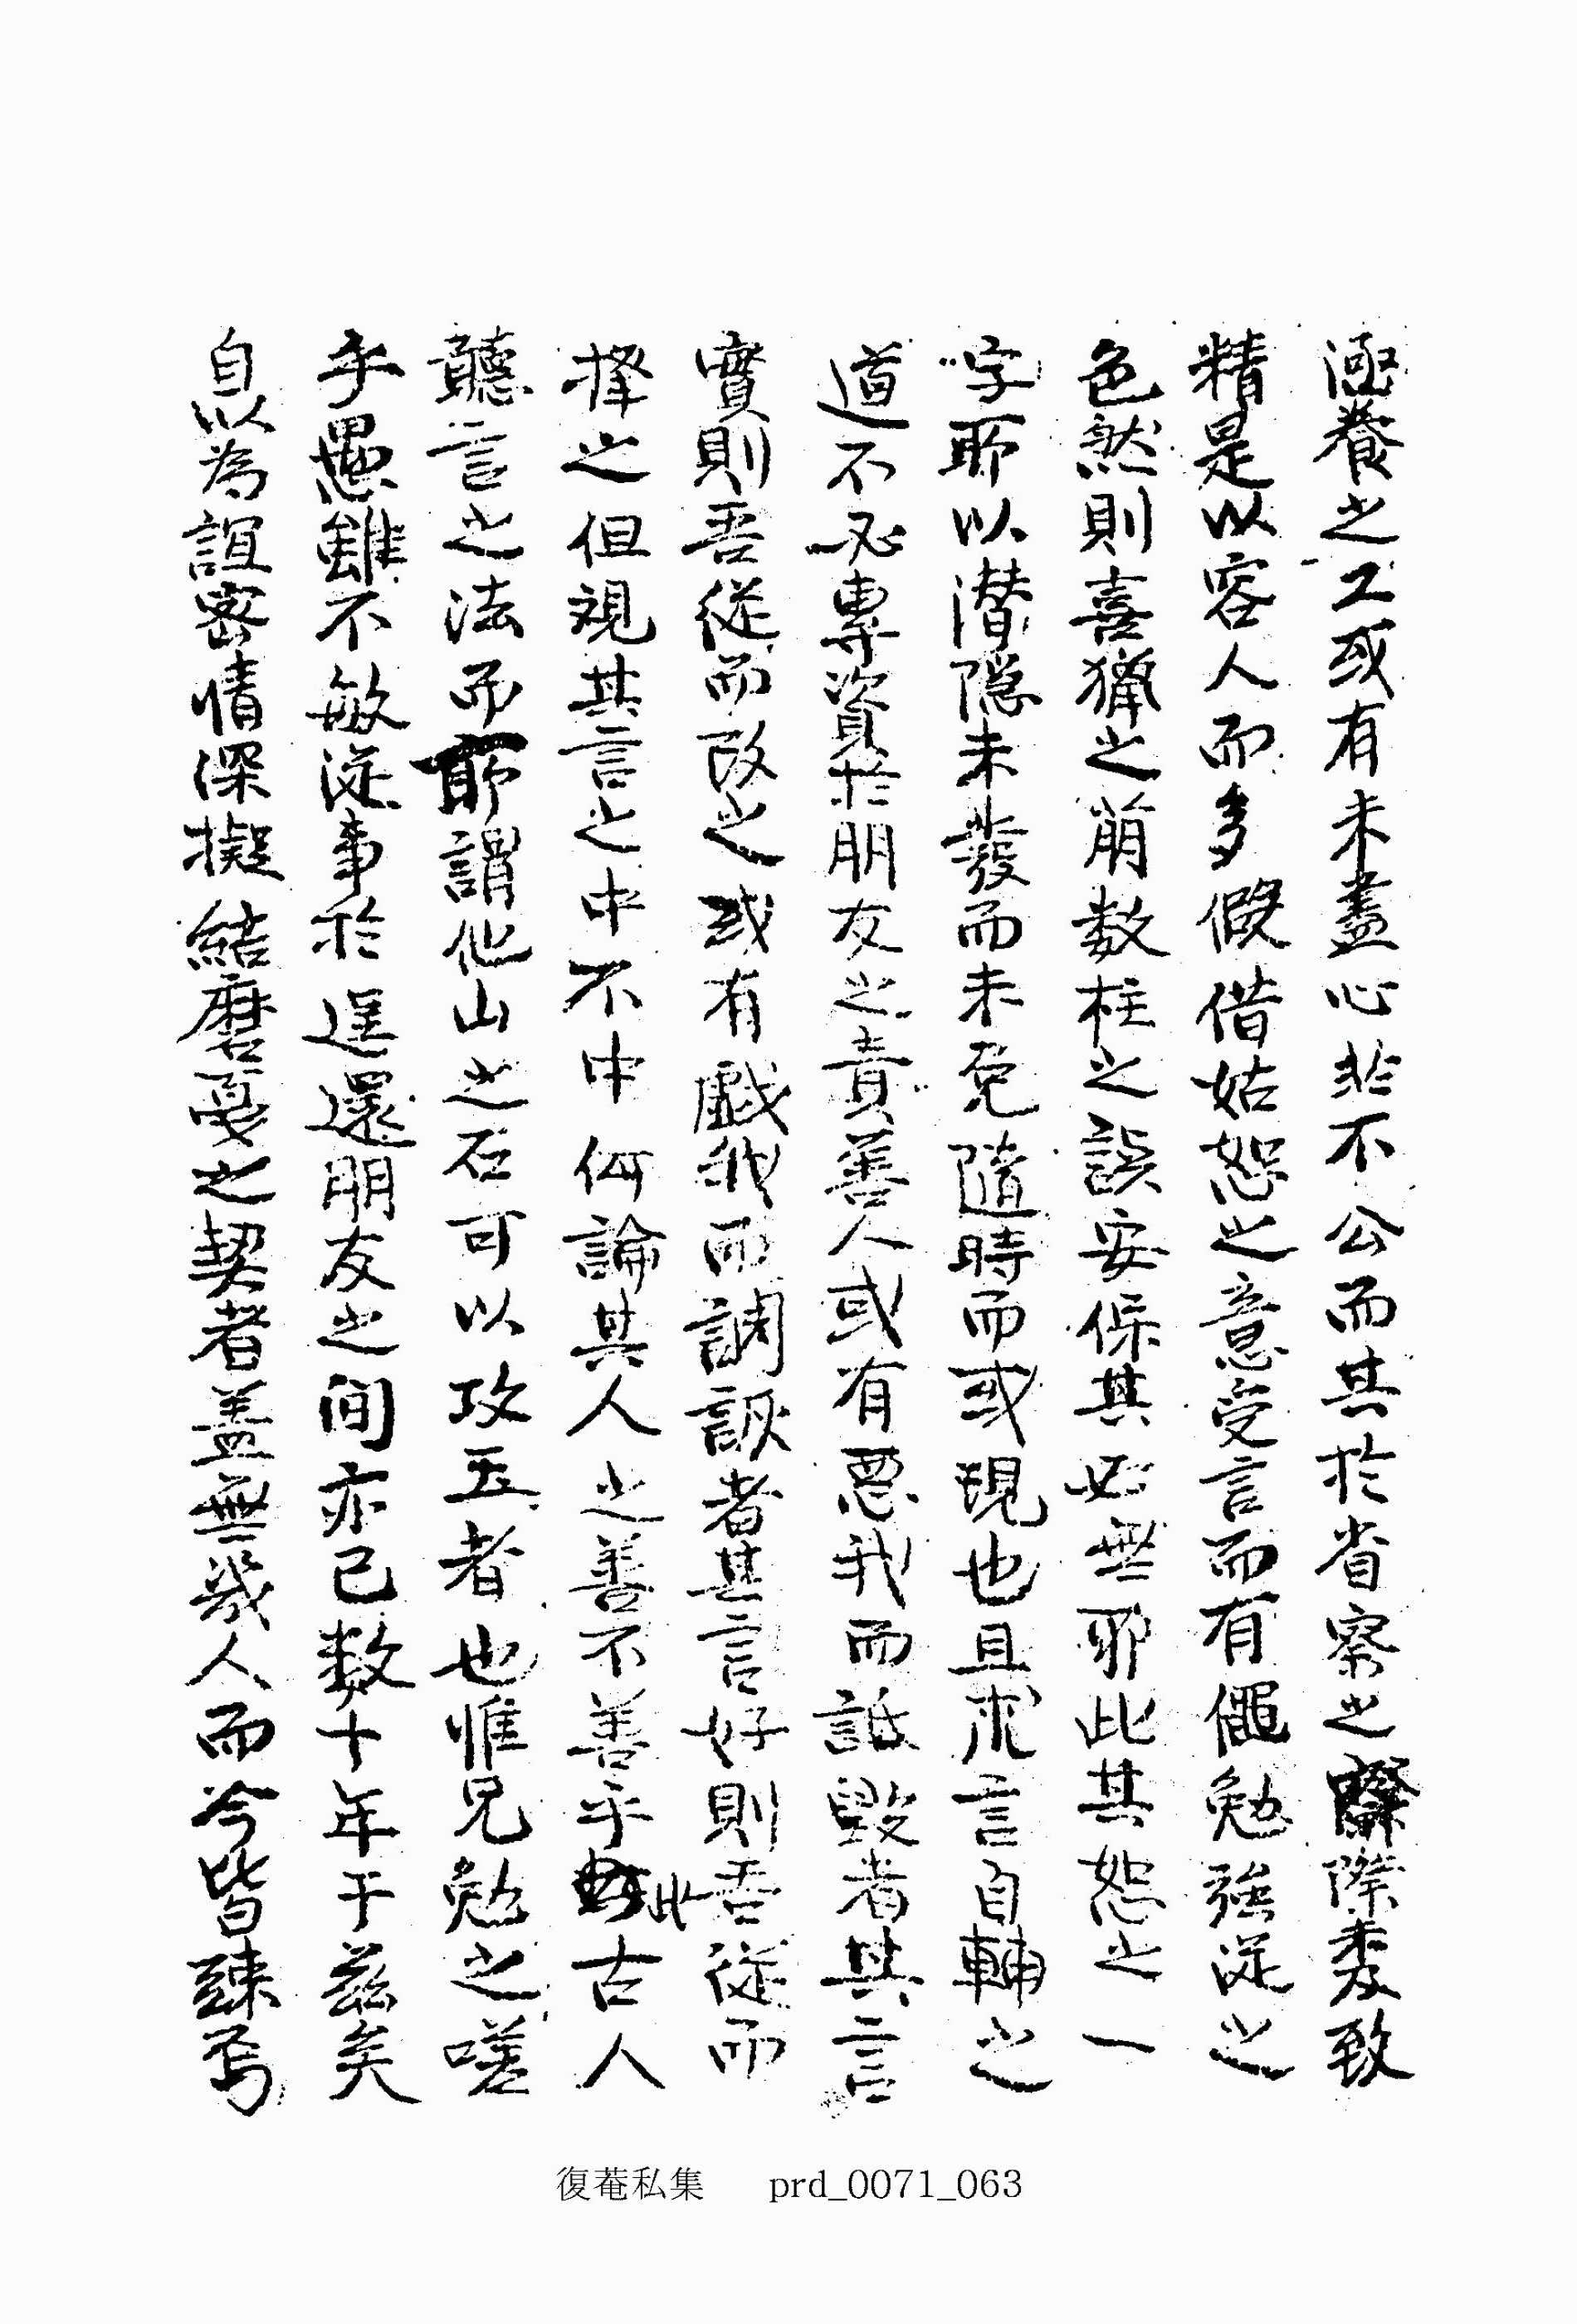 涵養之工或有未盡心非不公而其於省察之際未致
精是以容人而多假借姑恕之意受言而有僶勉強從之
色然則喜獵之萌數柱之誤安保其必無耶此其恕之一
字所以潛隱未發而未免隨時而或現也且求言自輔之
道不必專資於朋友之責善人或有惡我而詆毀者其言
實則吾從而改之或有戱我而調詼者其言好則吾從而
擇之但視其言之中不中何論其人之善不善乎此古人
聽言之法而所謂他山之石可以攻玉者也惟兄勉之嗟
乎愚雖不敏從事於遑還朋友之间亦已数十年于茲矣
自以為誼密情深擬結磨戛之契者盖無幾人而今皆踈焉
復菴私集 prd_0071_063